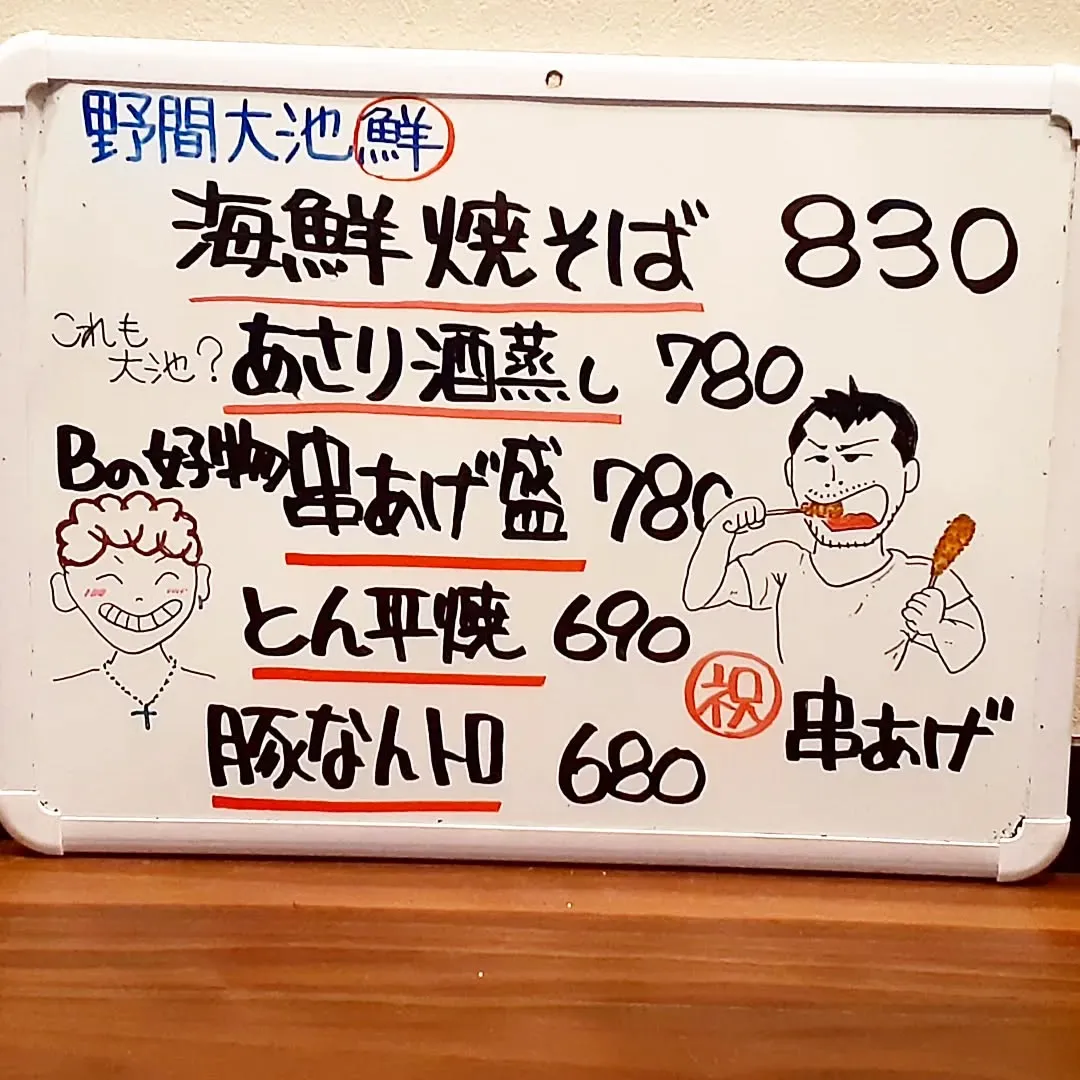 野間大池 鮮
海鮮焼そば 830
これも
大池?
あさり酒蒸し 780
Bの好物 串あげ盛 780
とん平焼 690
祝 串あげ
豚なんトロ 680